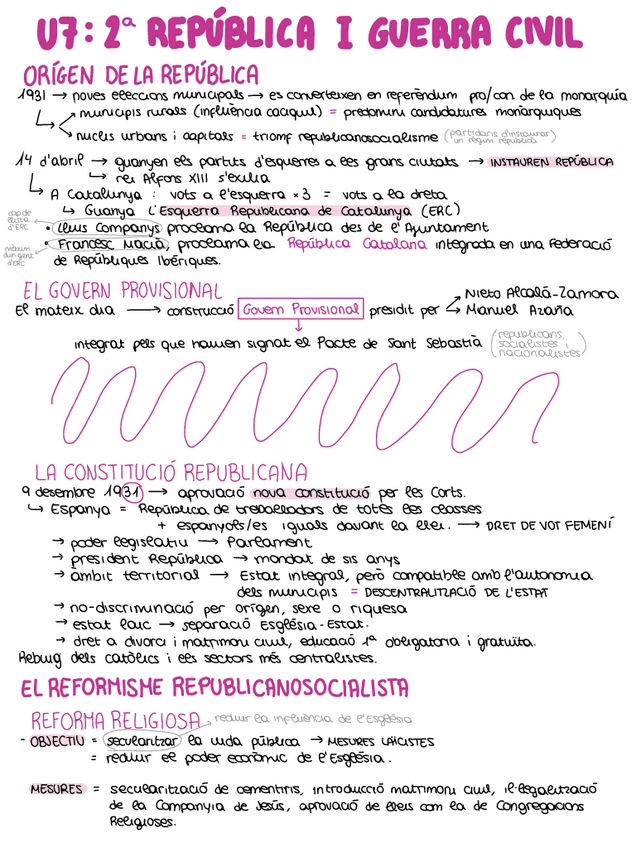 U7: 2ª REPÚBLICA I GUERRA CIVIL
ORÍGEN DE LA REPÚBLICA
1931 → noves eleccions municipals → es converteixen en referèndum pro/con de la monarquia
municipis rurals (influència caciquil) = predomini candidatures monàrquiques
nuclis urbans i capitals = triomf republicanosocialisme (partidaris d'instaurar un règim república)
14 d'abril → guanyen els partits d'esquerres a les grans ciutats → INSTAUREN REPÚBLICA
↳ rei Alfons XIII s'exilia
↳ A Catalunya : vots a l'esquerra x3 = vots a la dreta
↳ Guanya L'Esquerra Republicana de Catalunya (ERC)
cap de llista d'ERC
• Lluís Companys proclama la República des de l'Ajuntament
màxim dirigent d'ERC
• Francesc Macià, proclama la República Catalana integrada en una Federació
de Repúbliques Ibèriques.
EL GOVERN PROVISIONAL
El mateix dia → construcció Govern Provisional presidit per Nieto Alcalá-Zamora
Manuel Azaña
integrat pels que havien signat el Pacte de Sant Sebastià (republicans, socialistes i nacionalistes)
LA CONSTITUCIÓ REPUBLICANA
9 desembre 1931 → aprovació nova constitució per les Corts.
↳ Espanya = República de treballadors de totes les classes
+ espanyols/es iguals davant la llei. → DRET DE VOT FEMENÍ
→ poder legislatiu → Parlament
→ president República → mandat de sis anys
→ àmbit territorial → Estat integral, però compatible amb l'autonomia
dels municipis = DESCENTRALITZACIÓ DE L'ESTAT
→ no-discriminació per orígen, sexe o riquesa
→ estat laic → separació Església-Estat.
→ dret a divorci i matrimoni civil, educació 1ª obligatoria i gratuïta.
Rebuig dels catòlics i els sectors més centralistes.
EL REFORMISME REPUBLICANOSOCIALISTA
REFORMA RELIGIOSA → reduir la influència de l'Església
- OBJECTIU = secularitzar la vida pública → MESURES LAÏCISTES
= reduir el poder econòmic de l'Església.
MESURES = secularització de cementiris, introducció matrimoni civil, il·legalització
de la Companyia de Jesús, aprovació de lleis com la de Congregacions
Religioses.